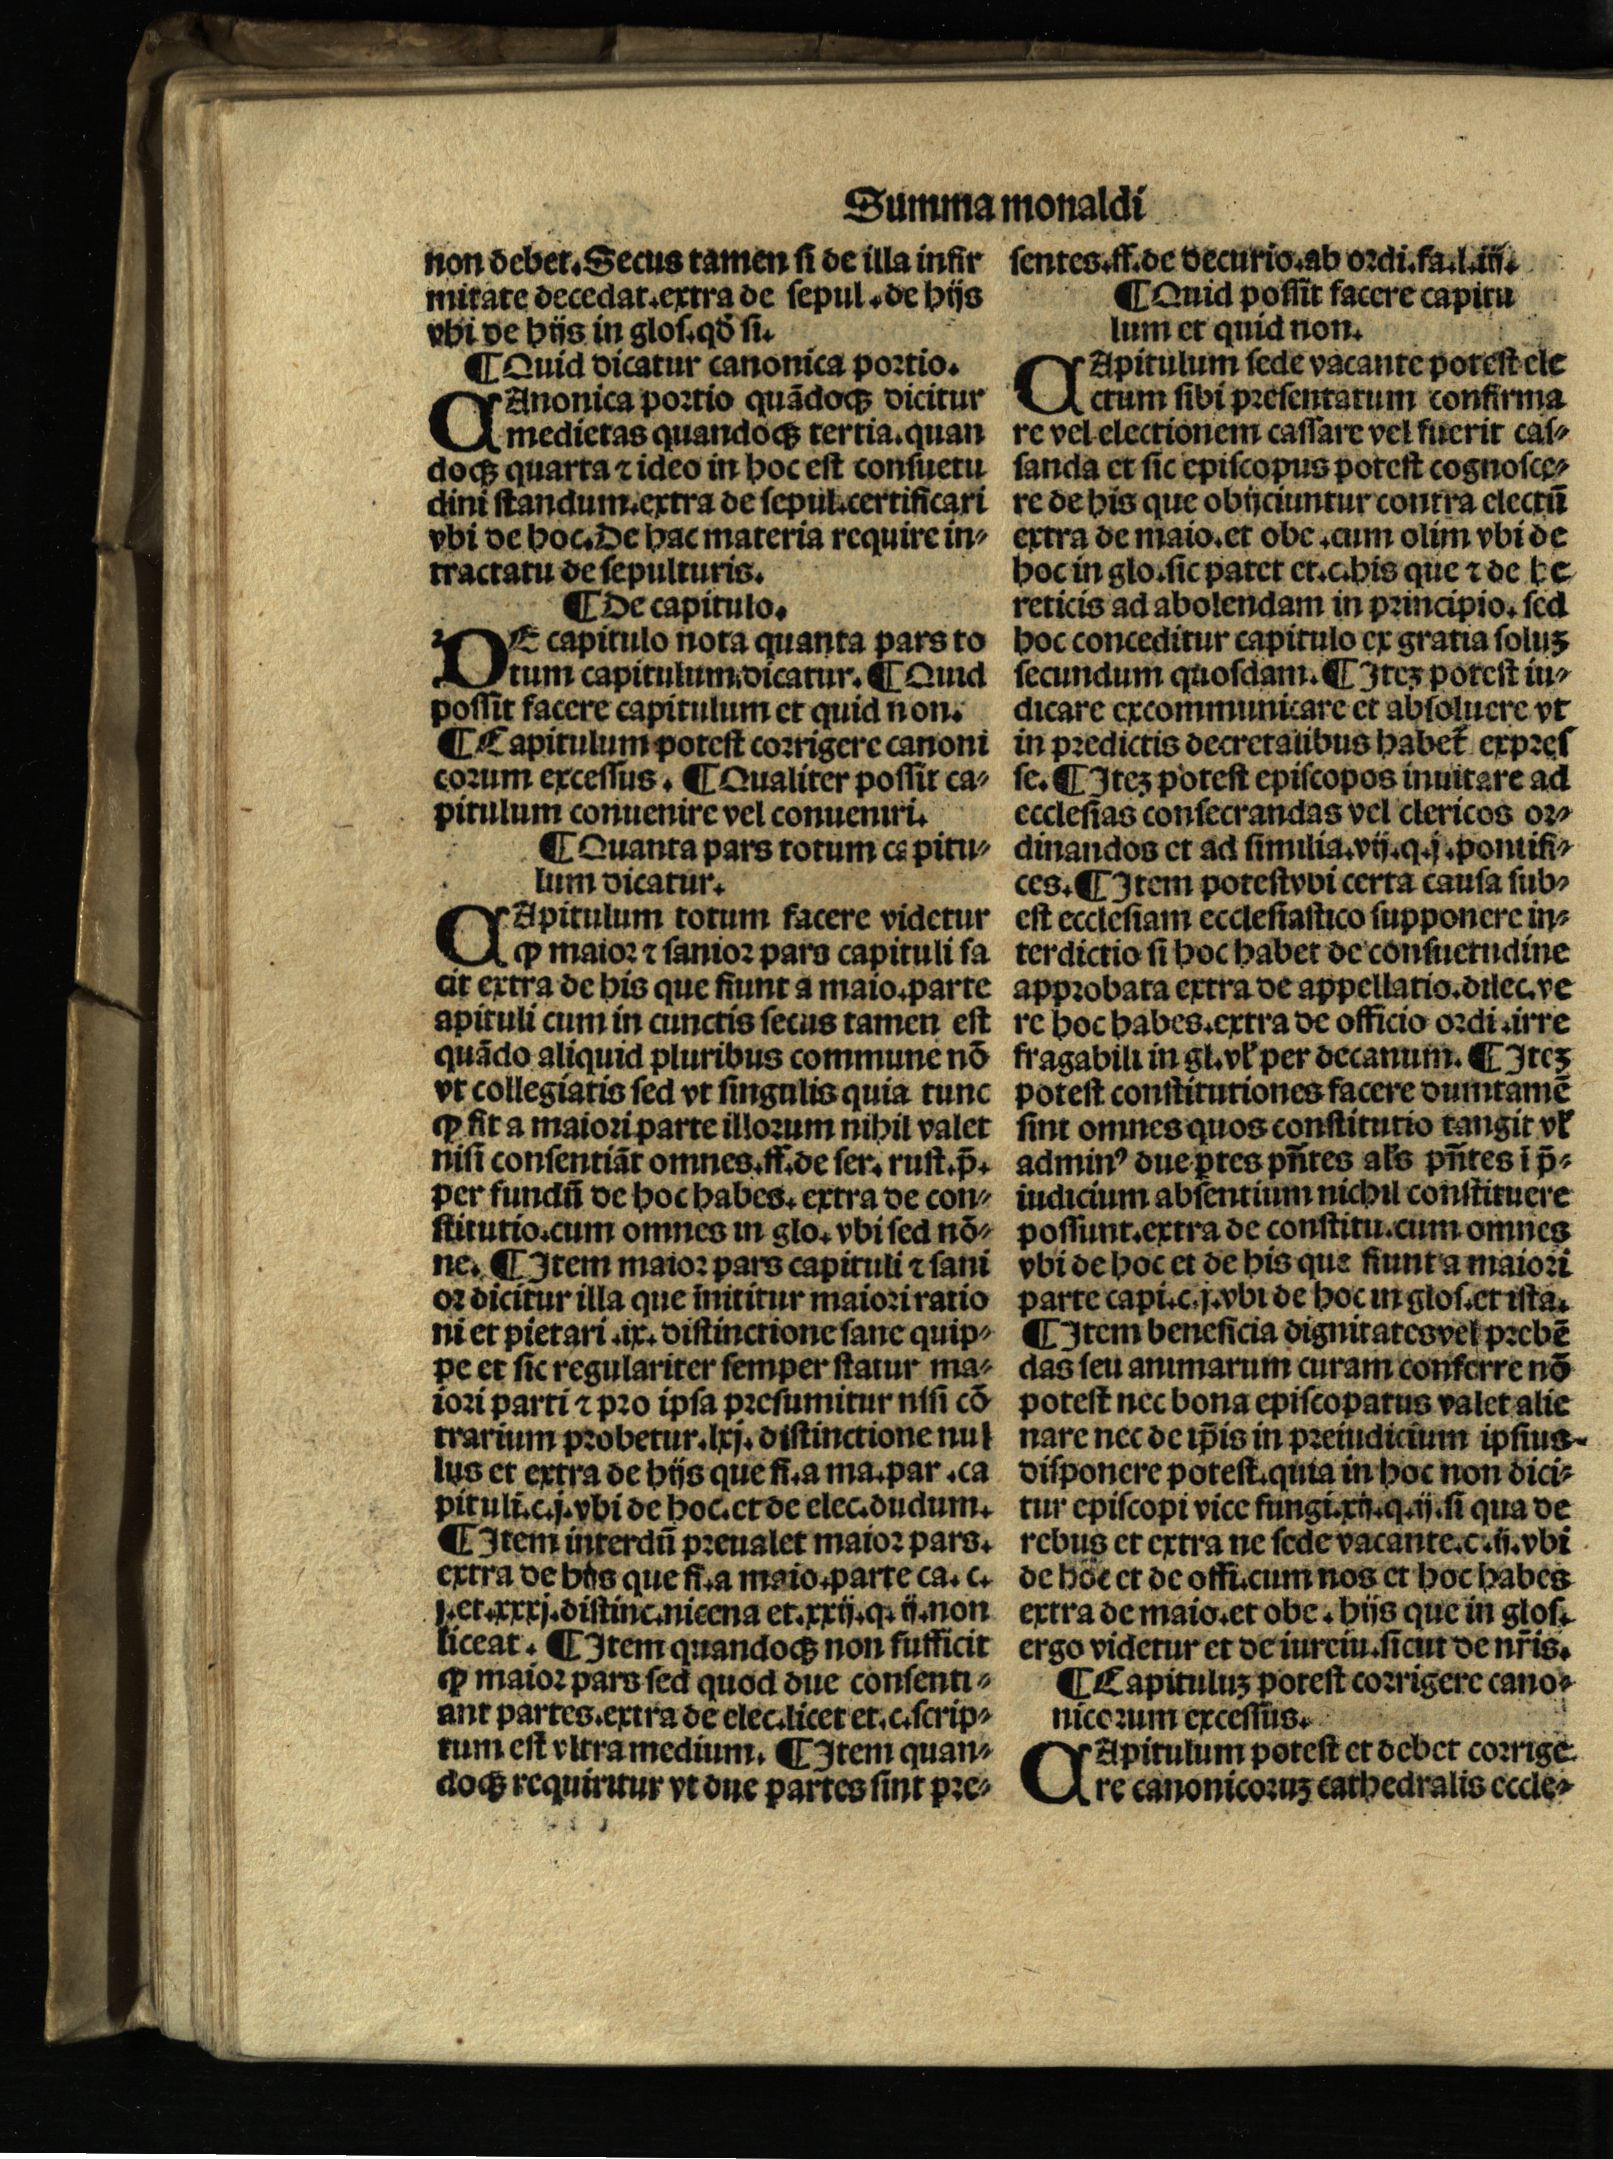 Summa monaldi
non debet. Secus tamen si de illa infir
mitate decedat. extra de sepul. de hijs
vbi de hijs in glos. qđ si.
¶ Quid dicatur canonica portio.
CAnonica portio quãdoqʒ dicitur
medietas quandoqʒ tertia. quan
doqʒ quarta ⁊ ideo in hoc est consuetu
dini standum. extra de sepul. certificari
vbi de hoc. De hac materia require in⸗
tractatu de sepulturis.
¶ De capitulo.
DE capitulo nota quanta pars to
tum capitulum dicatur. ¶ Quid
possit facere capitulum et quid non.
¶ Capitulum potest corrigere canoni
corum excessus. ¶ Qualiter possit ca⸗
pitulum conuenire vel conueniri.
¶ Quanta pars totum capitu⸗
lum dicatur.
CApitulum totum facere videtur
ꝙ maior ⁊ sanior pars capituli fa
cit extra de his que fiunt a maio. parte
apituli cum in cunctis secus tamen est
quãdo aliquid pluribus commune nõ
vt collegiatis sed vt singulis quia tunc
ꝙ fit a maiori parte illorum nihil valet
nisi consentiãt omnes. ff. de ser. rust. p̄.
per fundũ de hoc habes. extra de con⸗
stitutio. cum omnes in glo. vbi sed nõ⸗
ne. ¶ Item maior pars capituli ⁊ sani
or dicitur illa que innititur maiori ratio
ni et pietati .ix. distinctione sane quip⸗
pe et sic regulariter semper statur ma⸗
iori parti ⁊ pro ipsa presumitur nisi cõ
trarium probetur. lxj. distinctione nul
lus et extra de hijs que fi. a ma. par. ca
pituli. c. j. vbi de hoc. et de elec. dudum.
¶ Item interdũ preualet maior pars.
extra de his que fi. a maio. parte ca. c.
j. et. xxxj. distinc. nicena et. xxij. q. ij. non
liceat. ¶ Item quandoqʒ non sufficit
ꝙ maior pars sed quod due consenti⸗
ant partes. extra de elec. licet et. c. scrip⸗
tum est vltra medium. ¶ Item quan⸗
doqʒ requiritur vt due partes sint pre⸗
sentes. ff. de decurio. ab ordi. fa. l. iij.
¶ Quid possit facere capitu
lum et quid non.
CApitulum sede vacante potest ele
ctum sibi presentatum confirma
re vel electionem cassare vel fuerit cas⸗
sanda et sic episcopus potest cognosce⸗
re de his que obijciuntur contra electũ
extra de maio. et obe. cum olim vbi de
hoc in glo. sic patet et. c. his que ⁊ de he
reticis ad abolendam in principio. sed
hoc conceditur capitulo ex gratia soluʒ
secundum quosdam. ¶ Iteʒ potest iu⸗
dicare excommunicare et absoluere vt
in predictis decretalibus habet̃ expres
se. ¶ Iteʒ potest episcopos inuitare ad
ecclesias consecrandas vel clericos or⸗
dinandos et ad similia. vij. q. j. pontifi⸗
ces. ¶ Item potest vbi certa causa sub⸗
est ecclesiam ecclesiastico supponere in⸗
terdictio si hoc habet de consuetudine
approbata extra de appellatio. dilec. ve
re hoc habes. extra de officio ordi. irre
fragabili in gl. vl' per decanum. ¶ Iteʒ
potest constitutiones facere dumtamẽ
sint omnes quos constitutio tangit vl'
admin⁹ due ptes pñtes al's pñtes i p̄⸗
iudicium absentium nichil constituere
possunt. extra de constitu. cum omnes
vbi de hoc et de his que fiunt a maiori
parte capi. c. j. vbi de hoc in glos. et ista.
¶ Item beneficia dignitates vel prebẽ
das seu animarum curam conferre nõ
potest nec bona episcopatus valet alie
nare nec de ip̄is in preiudicium ipsius
disponere potest. quia in hoc non dici⸗
tur episcopi vice fungi. xij. q. ij. si qua de
rebus et extra ne sede vacante. c. ij. vbi
de hoc et de offi. cum nos et hoc habes
extra de maio. et obe. hijs que in glos.
ergo videtur et de iureiu. sicut de nr̃is.
¶ Capituluʒ potest corrigere cano⸗
nicorum excessus.
CApitulum potest et debet corrige
re canonicoruʒ cathedralis eccle⸗